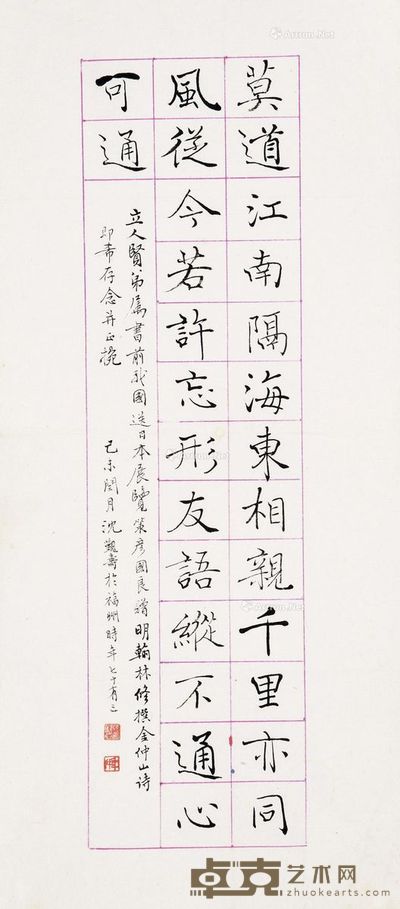 莫道江南隔海東相親千里亦同
風從今若許忘形友語縱不通心
可通
立人賢弟属書前我國送日本展覽策彦國良贈明翰林修撰金仲山诗
即希存念并正
己未閏月沈覲壽於福州時年七十有三
Artron.Net
卓克艺术网
www.zhuokearts.com